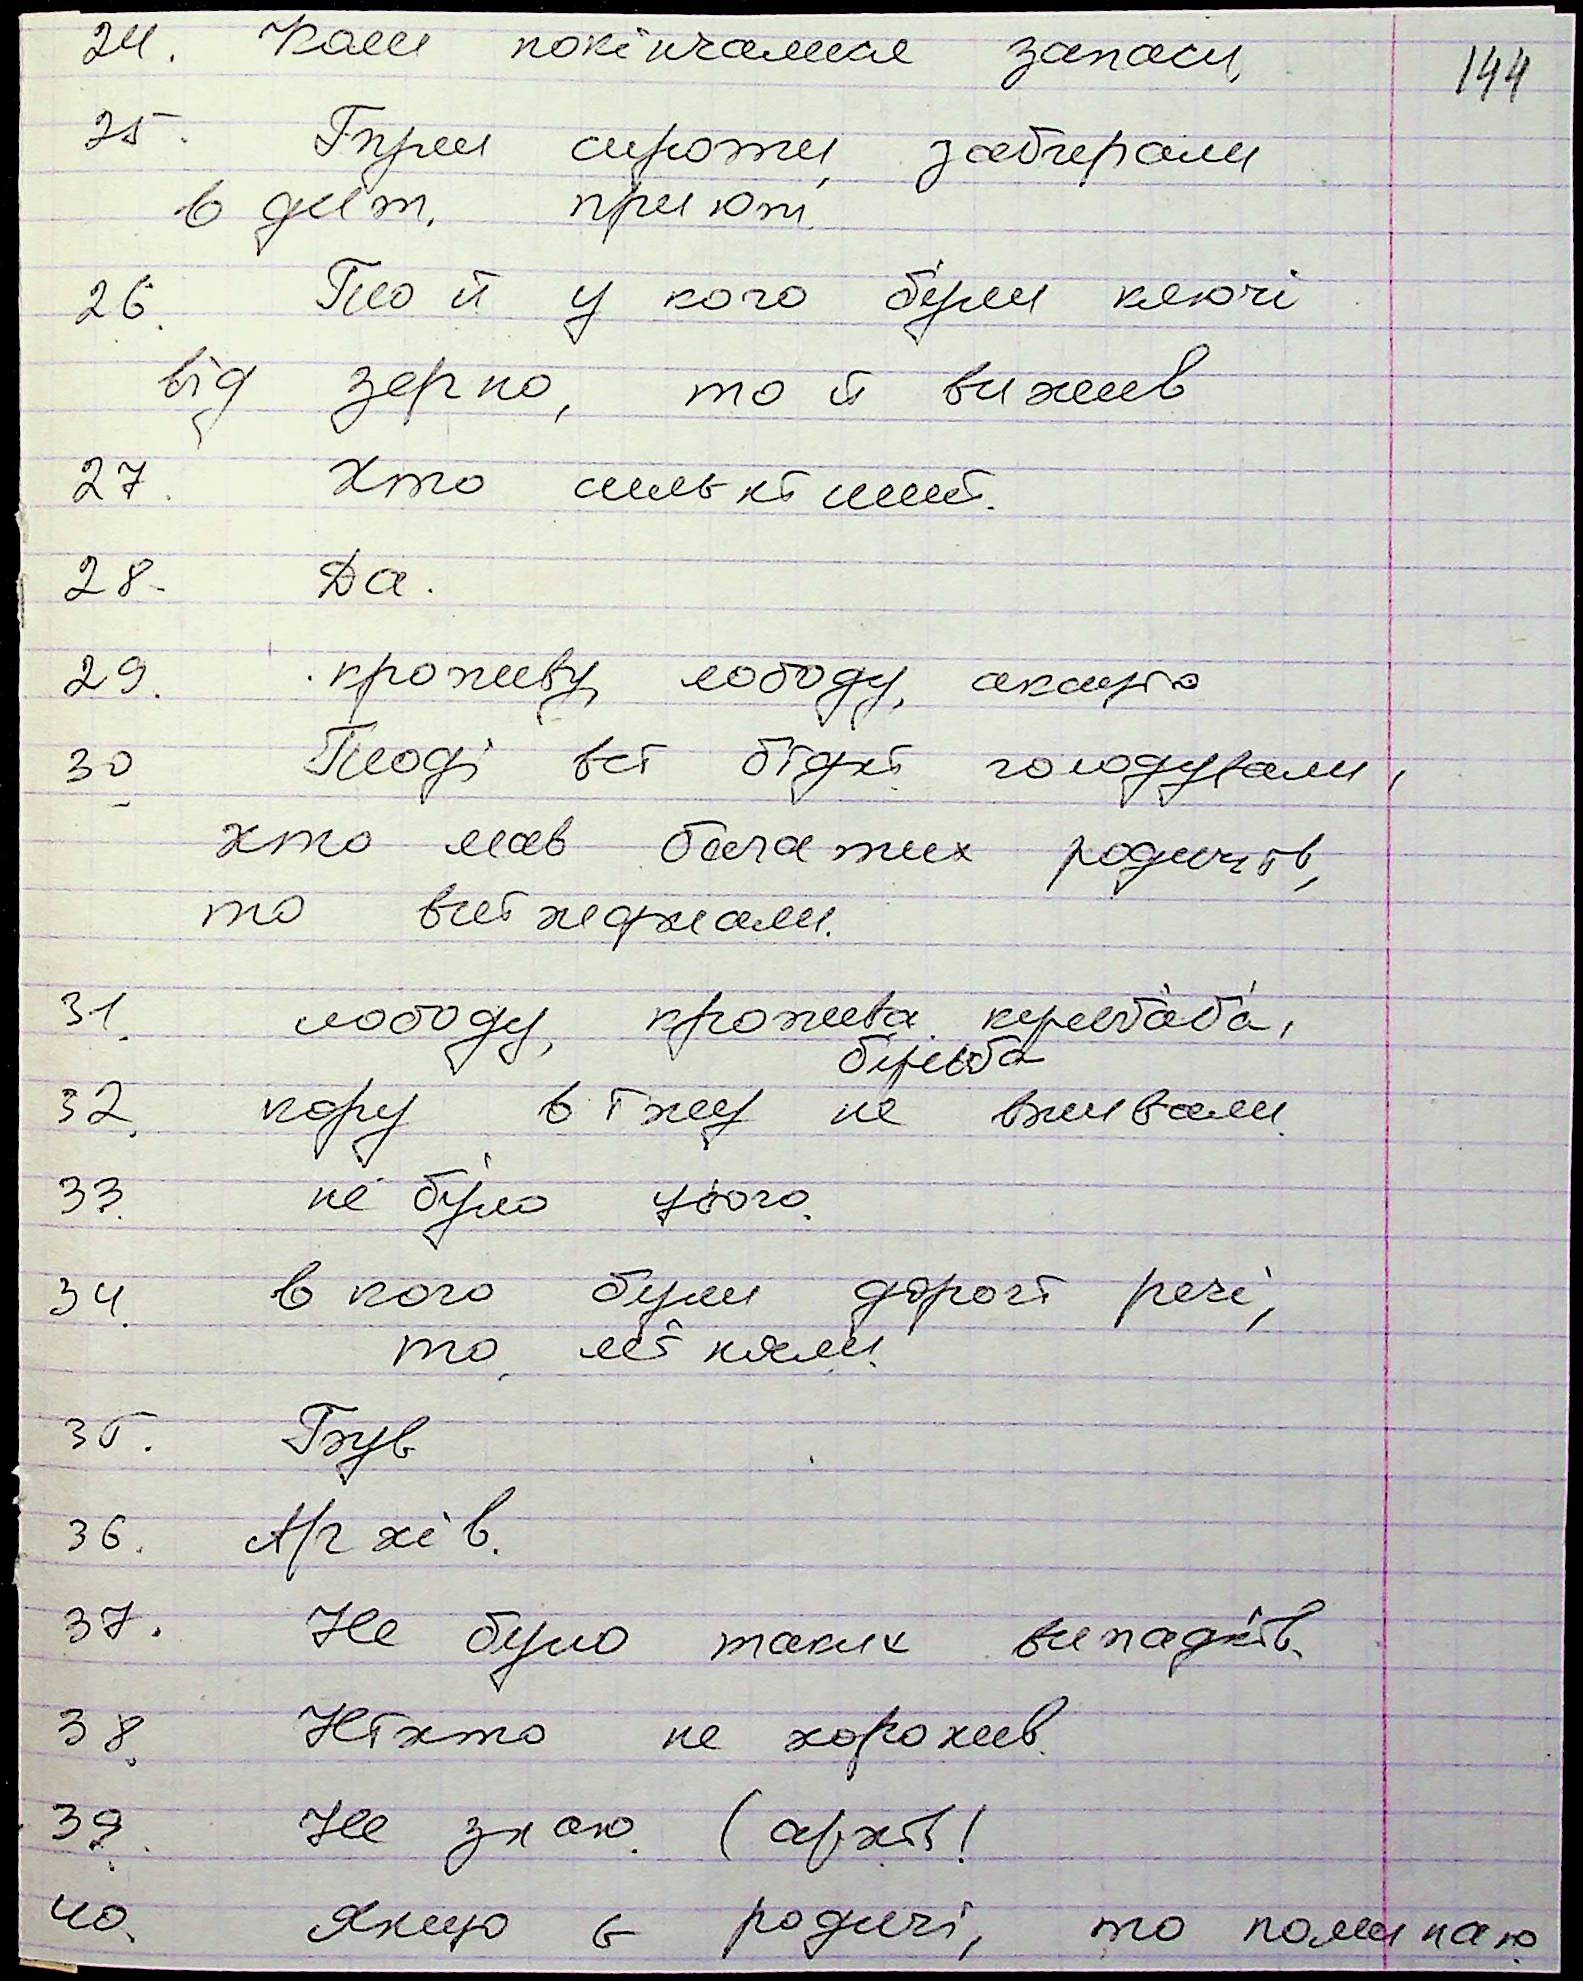 24. Коли покінчалися запаси
144
25. Були сироти, забирали
в дит. приют
26. Той у кого були ключі
від зерно, той вижив
27. Хто сильніший.
28. Да.
29. кроживу, лободу, акацію
30 Тоді всі бідні голодували,
хто мав багатих родичів,
то виїжджали.
31. лободу, крожива,
32. кору в їжу не вживали
33. не було цього.
34. в кого були дорогі речі,
то міняли.
35. Був
36. Архів.
37. Не було таких випадків.
38. Ніхто не хоронив.
39. Не знаю. (архів!
40. Якщо є родичі, то поминаю